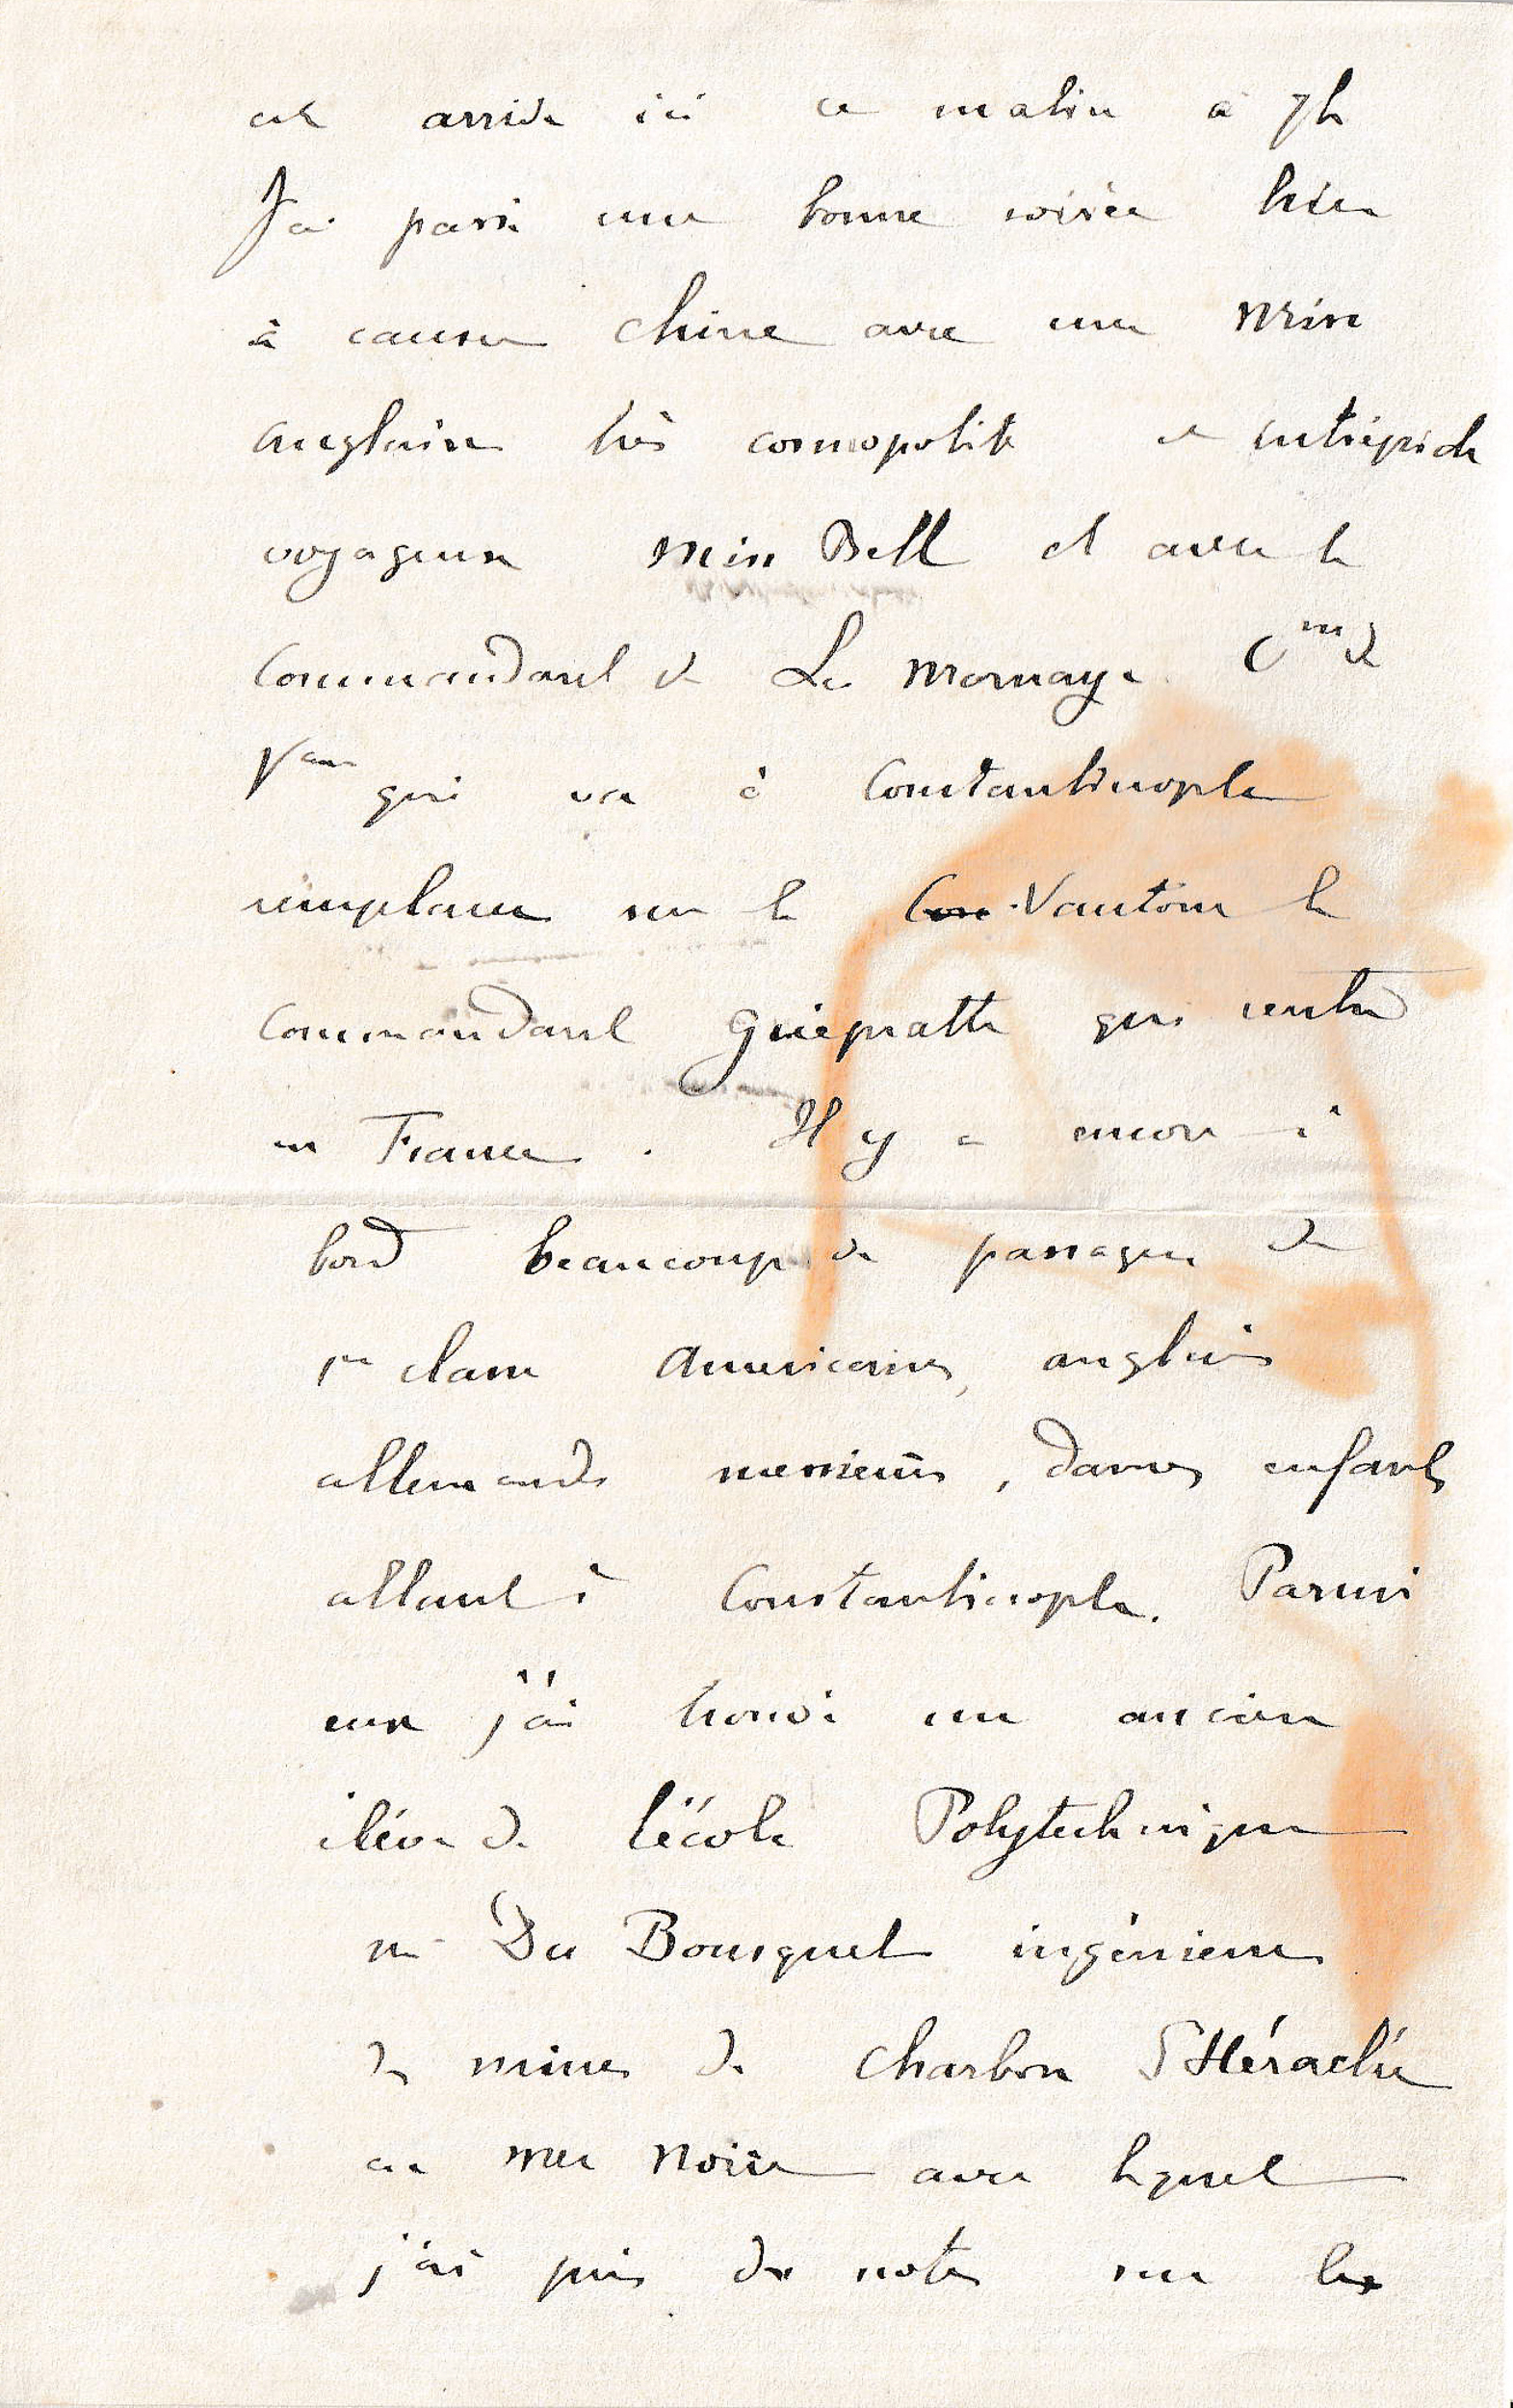 est arrivé ici ce matin à 7h
J'ai passé une bonne soirée hier
à causer Chine avec une Miss
anglaise très cosmopolite et intrépide
voyageuse Miss Bell et avec le
Commandant de La Mornaye
qui va à Constantinople
remplacer sur le Vautour le
Commandant Guépratte qui rentre
en France. Il y a encore à
bord beaucoup de passagers de
1re classe américains, anglais
allemands messieurs, dames enfants
allant à Constantinople. Parmi
eux j'ai trouvé un ancien
élève de l'école Polytechnique
Mr Du Bousquet ingénieur
des mines de charbon d'Héraclée
en mer Noire avec lequel
j'ai pris des notes sur les